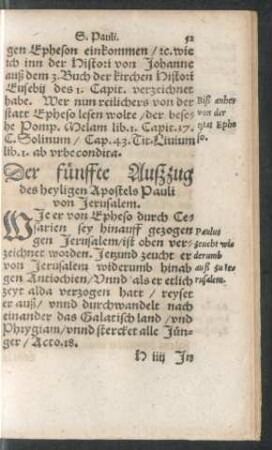 S. Pauli. 52
gen Epheson einkommen / ꝛc. wie
ich inn der Histori von Johanne
auß dem 3. Buch der kirchen Histori
Eusebij des 1. Capit. verzeichnet
habe. Wer nun reilichers von der
statt Epheso lesen wolte / der bese-
he Pomp. Melam lib. 1. Capit. 17.
C. Solinum / Cap. 43. Tit. Liuium
lib. 1. ab vrbe condita.
Biß anher
von der
stat Ephe
so.
Der fünffte Außzug
des heyligen Apostels Pauli
von Jerusalem.
WJe er von Epheso durch Ce-
sarien sey hinauff gezogen
gen Jerusalem / ist oben ver-
zeichnet worden. Jetzund zeucht er
von Jerusalem widerumb hinab
gen Antiochien / Vnnd als er etlich
zeyt alda verzogen hatt / reyset
er auß / vnnd durchwandelt nach
einander das Galatisch land / vnd
Phrygiam / vnnd stercket alle Jün-
ger / Acto. 18.
Paulus
zeucht wie
derumb
auß zu Je-
rusalem.
H iiij Jn